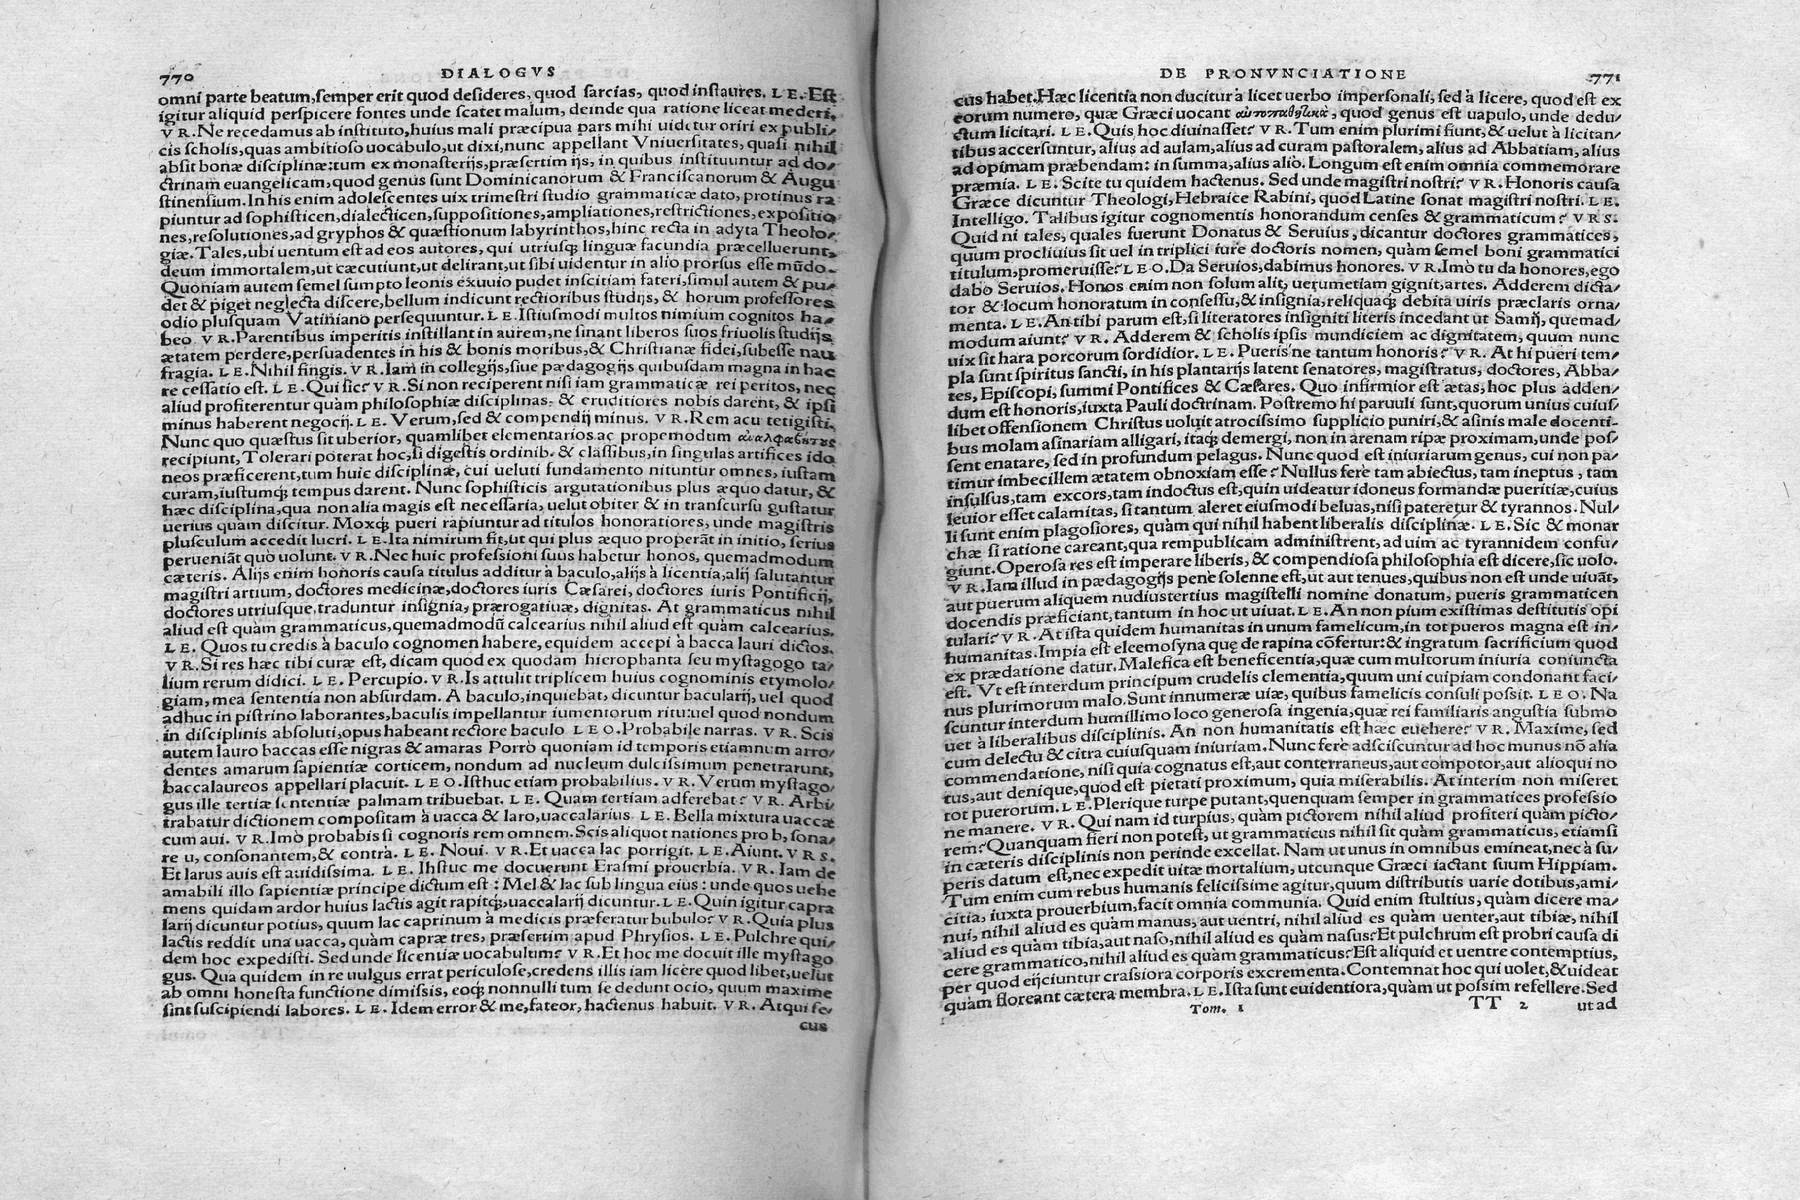 770 DIALOGVS
omni parte beatum, semper erit quod desideres, quod sarcias, quod instaures. L E. Est
igitur aliquid perspicere fontes unde scatet malum, deinde qua ratione liceat mederi.
V R. Ne recedamus ab instituto, huius mali præcipua pars mihi uidetur oriri ex publi/
cis scholis, quas ambitioso uocabulo, ut dixi, nunc appellant Vniuersitates, quasi nihil
absit bonæ disciplinæ: tum ex monasterijs, præsertim ijs, in quibus instituuntur ad do/
ctrinam euangelicam, quod genus sunt Dominicanorum & Franciscanorum & Augu
stinensium. In his enim adolescentes uix trimestri studio grammaticæ dato, protinus ra
piuntur ad sophisticen, dialecticen, suppositiones, ampliationes, restrictiones, expositio
nes, resolutiones, ad gryphos & quæstionum labyrinthos, hinc recta in adyta Theolo/
giæ. Tales, ubi uentum est ad eos autores, qui utriusq; linguæ facundia præcelluerunt,
deum immortalem, ut cæcutiunt, ut delirant, ut sibi uidentur in alio prorsus esse mūdo.
Quoniam autem semel sumpto leonis exuuio pudet inscitiam fateri, simul autem & pu/
det & piget neglecta discere, bellum indicunt rectioribus studijs, & horum professores
odio plusquam Vatiniano persequuntur. L E. Istiusmodi multos nimium cognitos ha/
beo. V R. Parentibus imperitis instillant in aurem, ne sinant liberos suos friuolis studijs
ætatem perdere, persuadentes in his & bonis moribus, & Christianæ fidei, subesse nau
fragia. L E. Nihil fingis. V R. Iam in collegijs, siue pædagogijs quibusdam magna in hac
re cessatio est. L E. Qui sic? V R. Si non reciperent nisi iam grammaticæ rei peritos, nec
aliud profiterentur quàm philosophiæ disciplinas, & eruditiores nobis darent, & ipsi
minus haberent negocij. L E. Verum, sed & compendij minus. V R. Rem acu tetigisti.
Nunc quo quæstus sit uberior, quamlibet elementarios ac propemodum ἀναλφαβήτους
recipiunt, Tolerari poterat hoc, si digestis ordinib. & classibus, in singulas artifices ido
neos præficerent, tum huic disciplinæ, cui ueluti fundamento nituntur omnes, iustam
curam, iustumq; tempus darent. Nunc sophisticis argutationibus plus æquo datur, &
hæc disciplina, qua non alia magis est necessaria, uelut obiter & in transcursu gustatur
uerius quàm discitur. Moxq; pueri rapiuntur ad titulos honoratiores, unde magistris
plusculum accedit lucri. L E. Ita nimirum fit, ut qui plus æquo properāt in initio, serius
perueniāt quò uolunt. V R. Nec huic professioni suus habetur honos, quemadmodum
cæteris. Alijs enim honoris causa titulus additur à baculo, alijs à licentia, alij salutantur
magistri artium, doctores medicinæ, doctores iuris Cæsarei, doctores iuris Pontificij,
doctores utriusque, traduntur insignia, prærogatiuæ, dignitas. At grammaticus nihil
aliud est quàm grammaticus, quemadmodū calcearius nihil aliud est quàm calcearius.
L E. Quos tu credis à baculo cognomen habere, equidem accepi à bacca lauri dictos.
V R. Si res hæc tibi curæ est, dicam quod ex quodam hierophanta seu mystagogo ta/
lium rerum didici. L E. Percupio. V R. Is attulit triplicem huius cognominis etymolo/
giam, mea sententia non absurdam. A baculo, inquiebat, dicuntur bacularij, uel quod
adhuc in pistrino laborantes, baculis impellantur iumentorum ritu: uel quod nondum
in disciplinis absoluti, opus habeant rectore baculo L E O. Probabile narras. V R. Scis
autem lauro baccas esse nigras & amaras Porrò quoniam id temporis etiamnum arro/
dentes amarum sapientiæ corticem, nondum ad nucleum dulcissimum penetrarunt,
baccalaureos appellari placuit. L E O. Isthuc etiam probabilius. V R. Verum mystago/
gus ille tertiæ sententiæ palmam tribuebat. L E. Quam tertiam adferebat? V R. Arbi/
trabatur dictionem compositam à uacca & laro, uaccalarius L E. Bella mixtura uaccæ
cum aui. V R. Imò probabis si cognoris rem omnem. Scis aliquot nationes pro b, sona/
re u, consonantem, & contrà. L E. Noui. V R. Et uacca lac porrigit. L E. Aiunt. V R S.
Et larus auis est auidissima. L E. Ihstuc me docuerunt Erasmi prouerbia. V R. Iam de
amabili illo sapientiæ principe dictum est: Mel & lac sub lingua eius: unde quos uehe
mens quidam ardor huius lactis agit rapitq;, uaccalarij dicuntur. L E. Quin igitur capra
larij dicuntur potius, quum lac caprinum à medicis præferatur bubulo? V R. Quia plus
lactis reddit una uacca, quàm capræ tres, præsertim apud Phrysios. L E. Pulchre qui/
dem hoc expedisti. Sed unde licentiæ uocabulum? V R. Et hoc me docuit ille mystago
gus. Qua quidem in re uulgus errat periculose, credens illis iam licere quod libet, uelut
ab omni honesta functione dimissis, eoq; nonnulli tum se dedunt ocio, quum maxime
sint suscipiendi labores. L E. Idem error & me, fateor, hactenus habuit. V R. Atqui se/
cus
DE PRONVNCIATIONE 771
cus habet. Hæc licentia non ducitur à licet uerbo impersonali, sed à licere, quod est ex
eorum numero, quæ Græci uocant αὐτοπαθητικὰ, quod genus est uapulo, unde dedu/
ctum licitari. L E. Quis hoc diuinasset? V R. Tum enim plurimi fiunt, & uelut à licitan/
tibus accersuntur, alius ad aulam, alius ad curam pastoralem, alius ad Abbatiam, alius
ad opimam præbendam: in summa, alius aliò. Longum est enim omnia commemorare
præmia. L E. Scite tu quidem hactenus. Sed unde magistri nostri? V R. Honoris causa
Græce dicuntur Theologi, Hebraice Rabini, quod Latine sonat magistri nostri. L E.
Intelligo. Talibus igitur cognomentis honorandum censes & grammaticum? V R S.
Quid ni tales, quales fuerunt Donatus & Seruius, dicantur doctores grammatices,
quum procliuius sit uel in triplici iure doctoris nomen, quàm semel boni grammatici
titulum, promeruisse? L E O. Da Seruios, dabimus honores. V R. Imò tu da honores, ego
dabo Seruios. Honos enim non solum alit, uerumetiam gignit, artes. Adderem dicta/
tor & locum honoratum in consessu, & insignia, reliquaq; debita uiris præclaris orna/
menta. L E. An tibi parum est, si literatores insigniti literis incedant ut Samij, quemad/
modum aiunt? V R. Adderem & scholis ipsis mundiciem ac dignitatem, quum nunc
uix sit hara porcorum sordidior. L E. Pueris ne tantum honoris? V R. At hi pueri tem/
pla sunt spiritus sancti, in his plantarijs latent senatores, magistratus, doctores, Abba/
tes, Episcopi, summi Pontifices & Cæsares. Quo infirmior est ætas, hoc plus adden/
dum est honoris, iuxta Pauli doctrinam. Postremo hi paruuli sunt, quorum unius cuius/
libet offensionem Christus uoluit atrocissimo supplicio puniri, & asinis male docenti-
bus molam asinariam alligari, itaq; demergi, non in arenam ripæ proximam, unde pos/
sent enatare, sed in profundum pelagus. Nunc quod est iniuriarum genus, cui non pa/
timur imbecillem ætatem obnoxiam esse? Nullus ferè tam abiectus, tam ineptus, tam
insulsus, tam excors, tam indoctus est, quin uideatur idoneus formandæ pueritiæ, cuius
leuior esset calamitas, si tantum aleret eiusmodi beluas, nisi pateretur & tyrannos. Nul/
li sunt enim plagosiores, quàm qui nihil habent liberalis disciplinæ. L E. Sic & monar
chæ si ratione careant, qua rempublicam administrent, ad uim ac tyrannidem confu/
giunt. Operosa res est imperare liberis, & compendiosa philosophia est dicere, sic uolo.
V R. Iam illud in pædagogijs penè solenne est, ut aut tenues, quibus non est unde uiuāt,
aut puerum aliquem nudiustertius magistelli nomine donatum, pueris grammaticen
docendis præficiant, tantum in hoc ut uiuat. L E. An non pium existimas destitutis opi
tulari? V R. At ista quidem humanitas in unum famelicum, in tot pueros magna est in/
humanitas. Impia est elemosyna quę de rapina cōfertur: & ingratum sacrificium quod
ex prædatione datur. Malefica est beneficentia, quæ cum multorum iniuria coniuncta
est. Vt est interdum principum crudelis clementia, quum uni cuipiam condonant faci/
nus plurimorum malo. Sunt innumeræ uiæ, quibus famelicis consuli possit. L E O. Na
scuntur interdum humillimo loco generosa ingenia, quæ rei familiaris angustia submo
uet à liberalibus disciplinis. An non humanitatis est hæc euehere? V R. Maxime, sed
cum delectu & citra cuiusquam iniuriam. Nunc ferè adsciscuntur ad hoc munus nō alia
commendatione, nisi quia cognatus est, aut conterraneus, aut compotor, aut alioqui no
tus, aut denique, quod est pietati proximum, quia miserabilis. At interim non miseret
tot puerorum. L E. Plerique turpe putant, quenquam semper in grammatices professio
ne manere. V R. Qui nam id turpius, quàm pictorem nihil aliud profiteri quàm picto/
rem? Quanquam fieri non potest, ut grammaticus nihil sit quàm grammaticus, etiamsi
in cæteris disciplinis non perinde excellat. Nam ut unus in omnibus emineat, nec à su/
peris datum est, nec expedit uitæ mortalium, utcunque Græci iactant suum Hippiam.
Tum enim cum rebus humanis felicissime agitur, quum distributis uarie dotibus, ami/
citia, iuxta prouerbium, facit omnia communia. Quid enim stultius, quàm dicere ma/
nui, nihil aliud es quàm manus, aut uentri, nihil aliud es quàm uenter, aut tibiæ, nihil
aliud es quàm tibia, aut naso, nihil aliud es quàm nasus? Et pulchrum est probri causa di
cere grammatico, nihil aliud es quàm grammaticus? Est aliquid et uentre contemptius,
per quod eijciuntur crassiora corporis excrementa. Contemnat hoc qui uolet, & uideat
quàm floreant cætera membra. L E. Ista sunt euidentiora, quàm ut possim refellere. Sed
Tom. 1 TT 2 ut ad